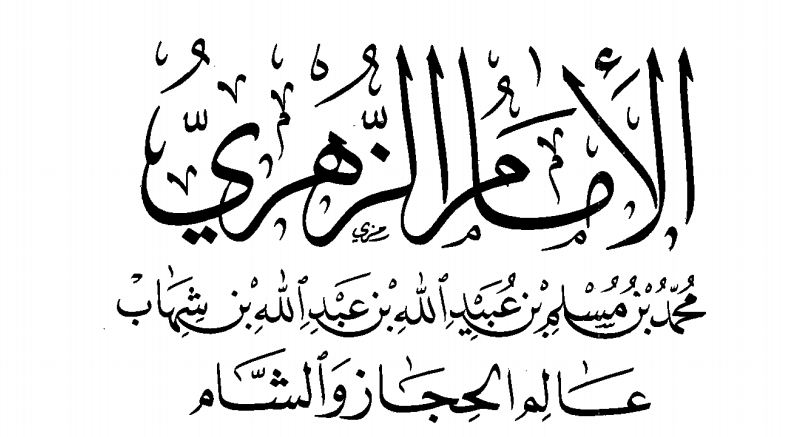 الإمام الزُّهريُّ
مُحَمَّدُ بْنُ مُسْلِمِ بْنِ عُبَيْدِ اللهِ بْنِ عَبْدِ اللهِ بْنِ شِهَابْ
عَالِم الحِجَاز وَالشَّام